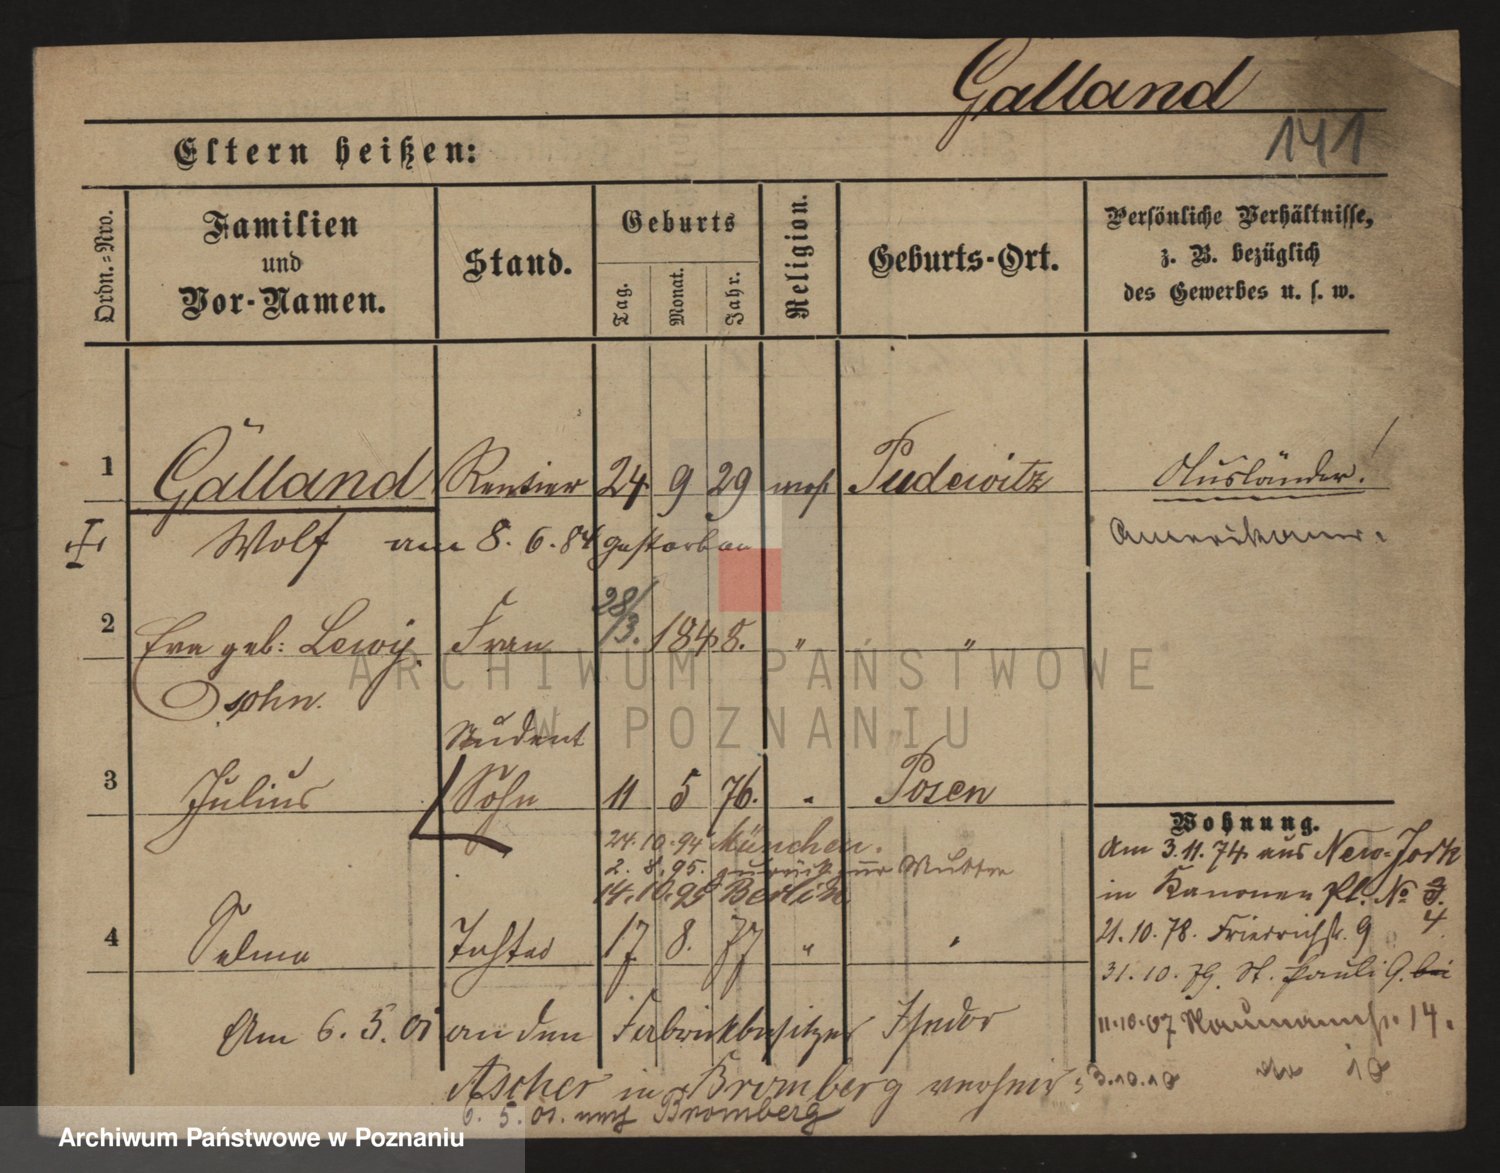 Galland
141
Eltern heißen:
Ordn.=Nro.
Familien
und
Vor-Namen.
Stand.
Geburts
Tag.
Monat.
Jahr.
Religion.
Geburts-Ort.
Persönliche Verhältnisse,
z. B. bezüglich
des Gewerbes u. s. w.
1 Galland Rentier 24 9 29 mos. Pudewitz Ausländer!
Wolf am 8. 6. 84 gestorben Amerikaner.
28/3.
2 Eva geb: Lewy. Frau 1848. " "
Student
3 Julius Sohn 11 5 76. " Posen
Wohnung.
24.10.94 München.
Am 3.11.74 aus New-Jork
2. 8. 95. zurück zur Mutter
14.10.95 Berlin
in Kanonen Pl. No 3.
4
21.10.78. Friedrichstr. 9
4 Selma Tochter 17 8. 77 " "
31. 10. 79. St. Pauli 9. bei
Am 6. 5. 01 an den Fabrikbesitzer Isidor
11.10.07 Naumannstr. 14.
Ascher in Bromberg verheir.
3.10.10 18
6. 5. 01. nach Bromberg
ARCHIWUM PAŃSTWOWE
W POZNANIU
Archiwum Państwowe w Poznaniu